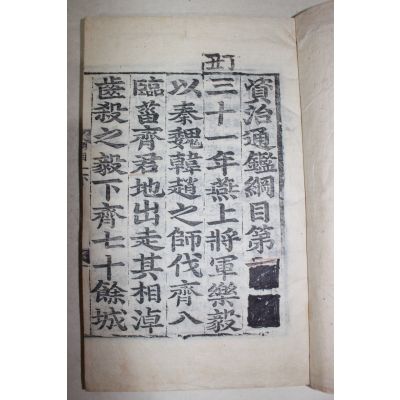 資治通鑑綱目第
丁丑
三十一年燕上將軍樂毅
以秦魏韓趙之師伐齊入
臨菑齊君地出走其相淖
齒殺之毅下齊七十餘城